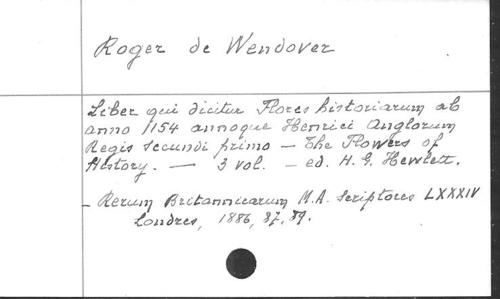 Roger de Wendover
Liber qui dicitur Flores historiarum ab
anno 1154 annoque Henrici Anglorum
Regis secundi primo — The Flowers of
History. — 3 vol. — ed. H. G. Hewlett.
- Rerum Britannicarum M.A. Scriptores LXXXIV
Londres, 1886, 87, 89.